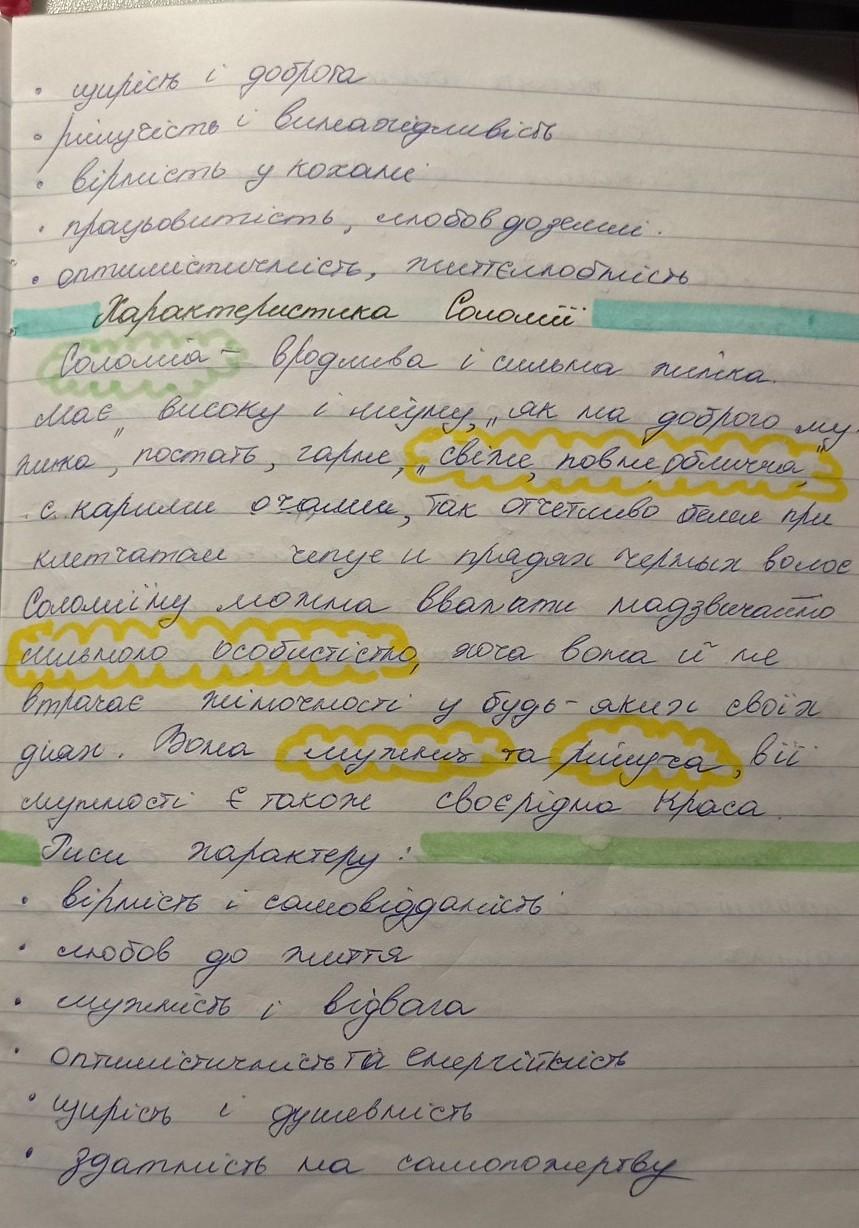 • щирість і доброта
• рішучість і винахідливість
• вірність у кохані
• працьовитість, любов до землі.
• оптимістичність, життєлюбність
Характеристика Соломії
Соломія – вродлива і сильна жінка.
Має високу і міцну, „як на доброго му-
жика", постать, гарне, „свіже, повне обличча,"
с карими очами, так отчетливо белея при
клетчатом чепце и прядях черных волос
Соломіїну можна вважати надзвичайно
сильною особистістю, хоча вона й не
втрачає жіночності у будь-яких своїх
діях. Вона мужня та рішуча, в її
мужності є також своєрідна краса.
Риси характеру:
• вірність і самовідданість
• любов до життя
• мужність і відвага
• оптимістичність та енергійність
• щирість і душевність
• здатність на самопожертву